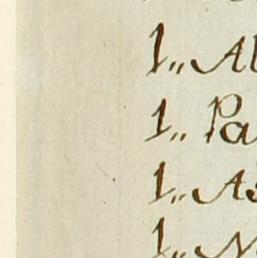 1,, Al
1,, Pa
1,, As
1,, N